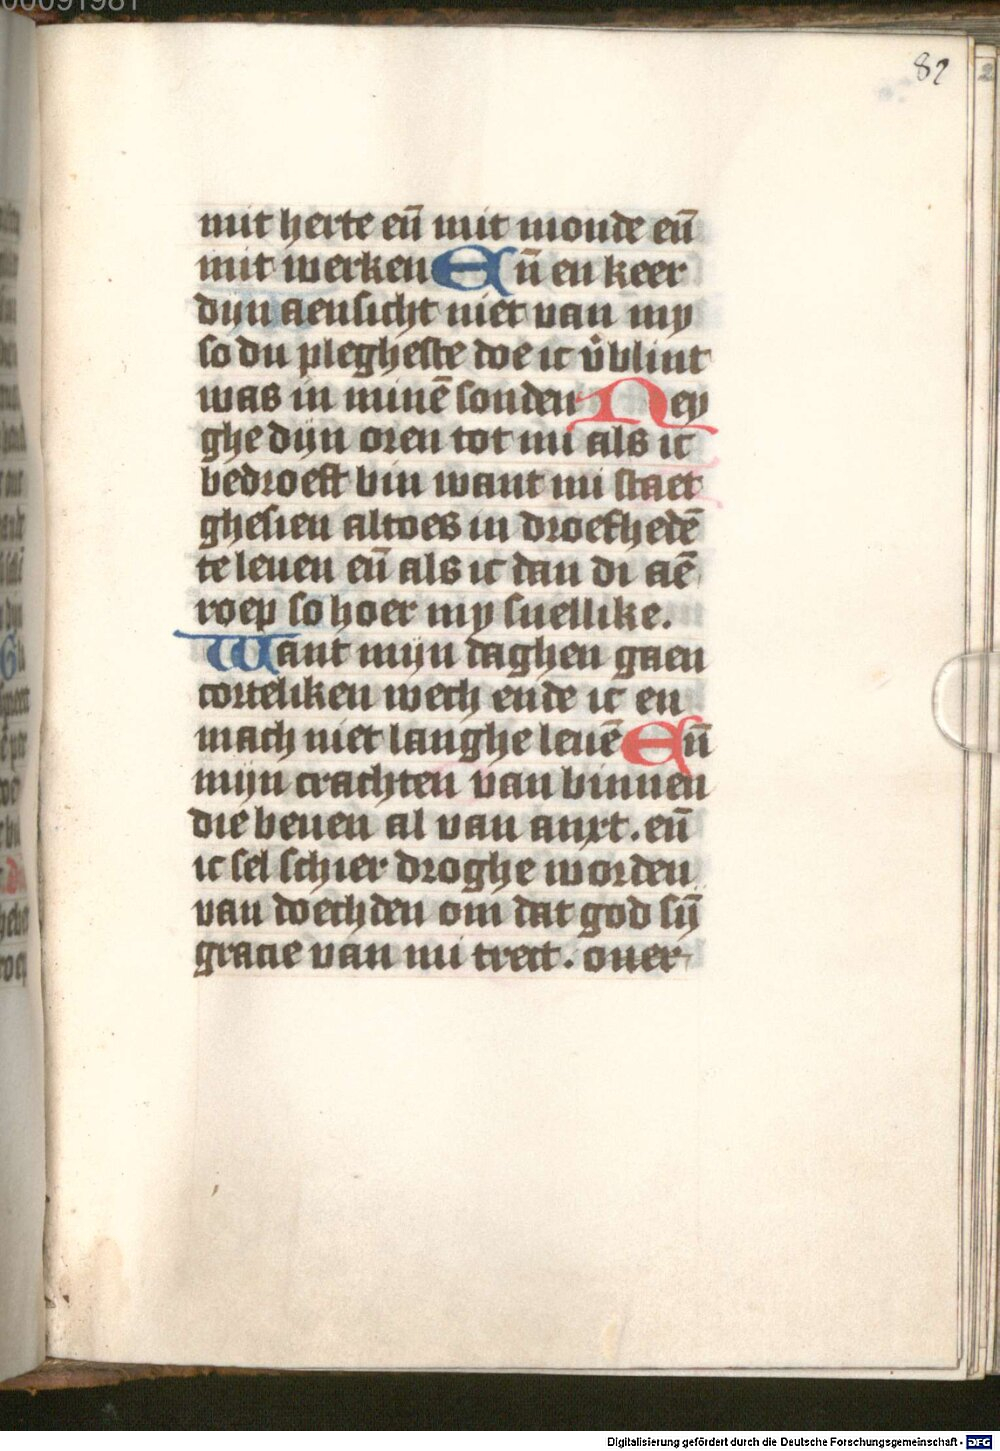 82
mit herte eñ mit monde eñ
mit werken Eñ en keer
dijn aensicht niet van my
so du plegheste doe ic v̉blint
was in minē sonden Ney
ghe dijn oren tot mi als ic
bedroeft bin want mi staet
ghesien altoes in droefhedē
te leuen eñ als ic dan di aē
roep so hoer my snellike.
Want mijn daghen gaen
corteliken wech ende ic en
mach niet langhe leuē Eñ
mijn crachten van binnen
die beuen al van anxt. eñ
ic sel schier droghe worden
van doechden om dat god sȳ
gracie van mi trect. ouer
Digitalisierung gefördert durch die Deutsche Forschungsgemeinschaft - DFG